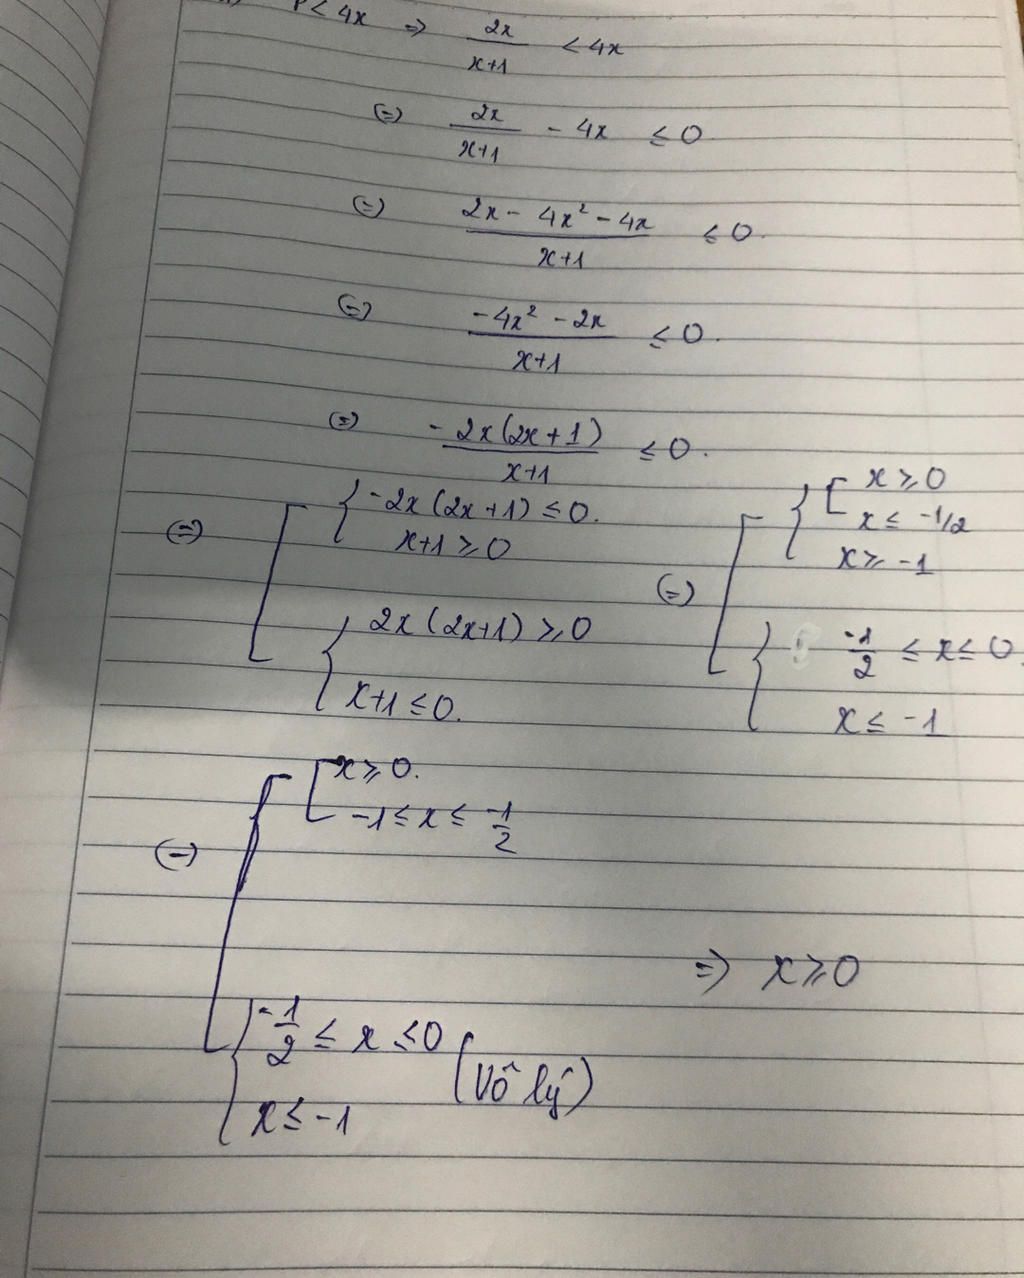 P < 4x ⇒ 2x/(x+1) < 4x
(=) 2x/(x+1) - 4x ≤ 0
(=) (2x - 4x² - 4x)/(x+1) ≤ 0.
(=) (-4x² - 2x)/(x+1) ≤ 0.
(=) -2x(2x+1)/(x+1) ≤ 0.
(=) [ { -2x(2x+1) ≤ 0.
x+1 ≥ 0
{ 2x(2x+1) ≥ 0
x+1 ≤ 0.
(=) [ { [ x ≥ 0
x ≤ -1/2
x ≥ -1
{ -1/2 ≤ x ≤ 0.
x ≤ -1
(=) [ [ x ≥ 0.
-1 ≤ x ≤ -1/2
{ -1/2 ≤ x ≤ 0
x ≤ -1
(Vô lý)
⇒ x ≥ 0